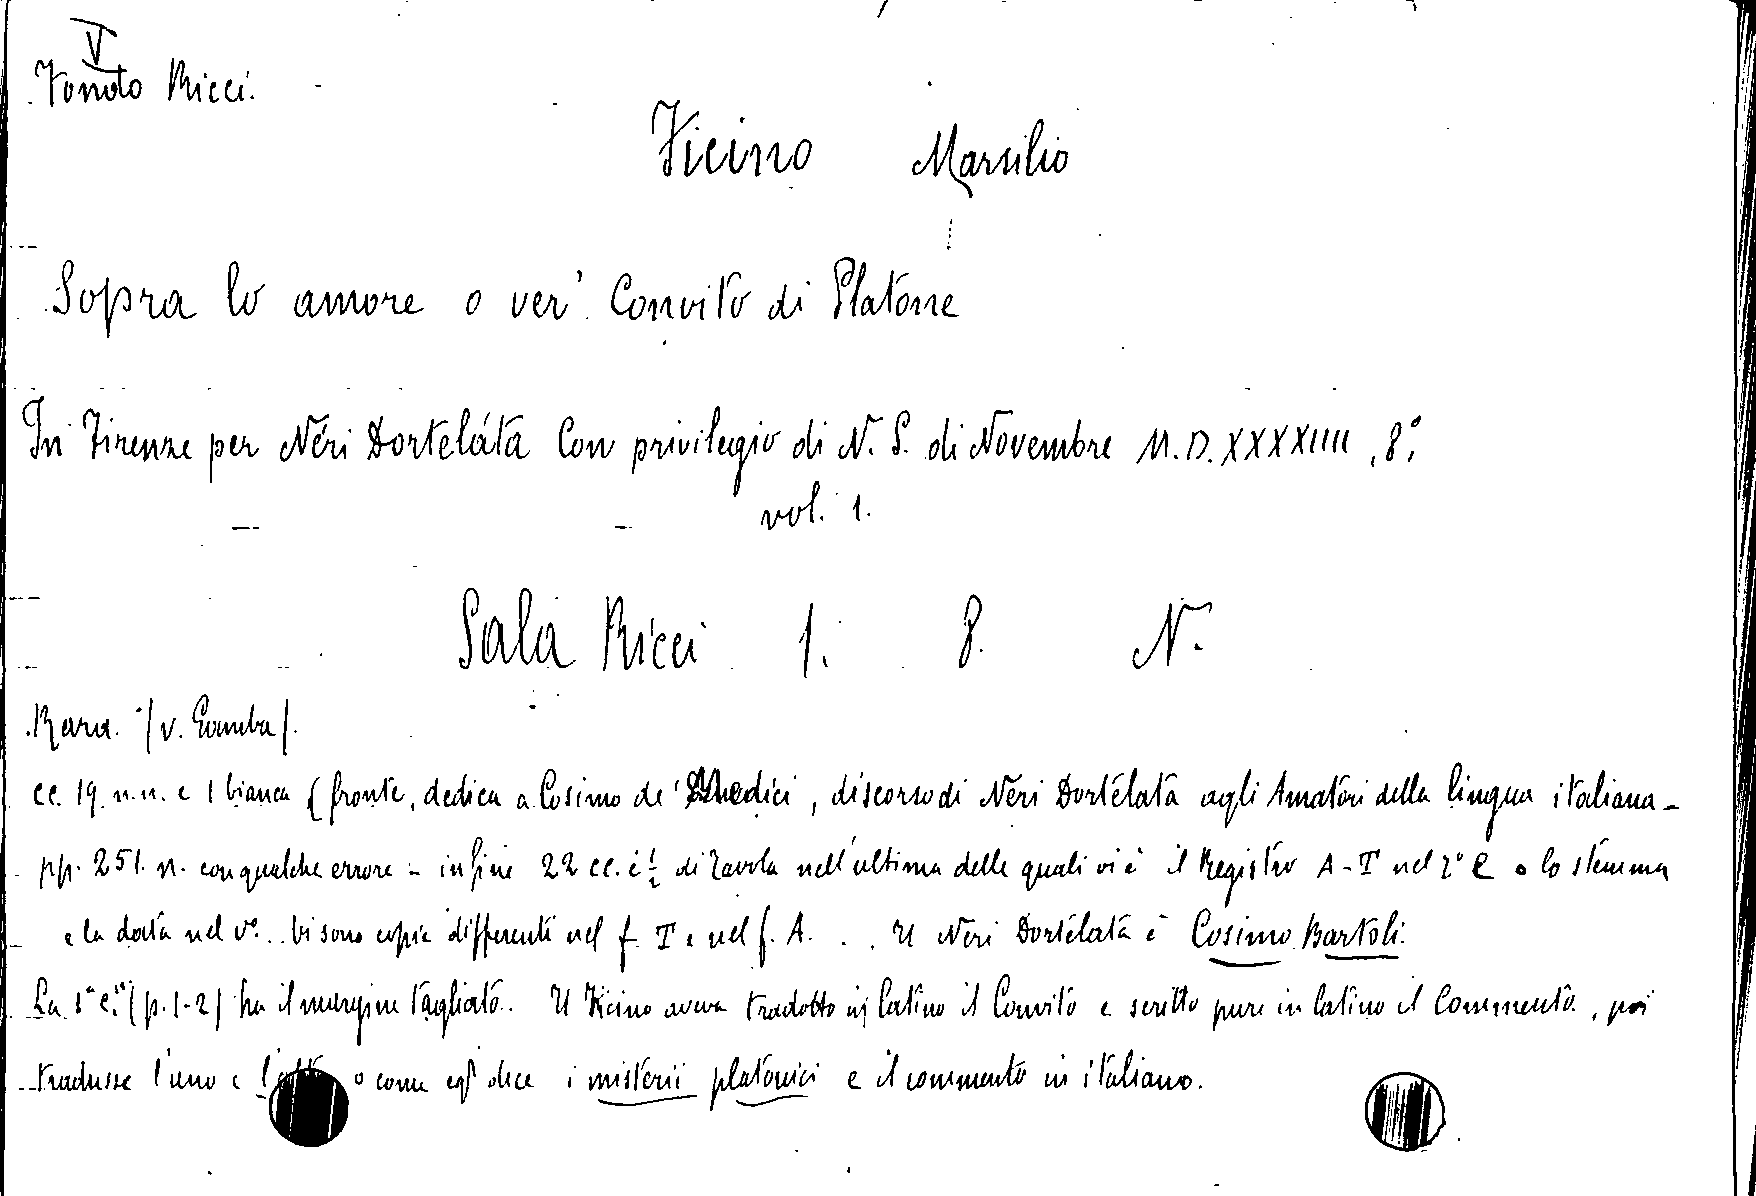 V
Fondo Ricci.
Ficino Marsilio
Sopra lo amore o ver' Convito di Platone
In Firenze per Néri Dorteláta Con privilegio di N. S. di Novembre M.D.XXXXIIII, 8°.
vol. 1.
Sala Ricci 1. 8. N.
Rara. (v. Gamba).
cc. 19 n.n. e 1 bianca (fronte, dedica a Cosimo de' Medici, discorso di Neri Dortelata agli Amatori della lingua italiana -
pp. 251. n. con qualche errore - in fine 22 cc. e ½ di Tavola nell'ultima delle quali vi è il Registro A-T nel r° e lo stemma
e la data nel v°... Vi sono copie differenti nel f. T e nel f. A. . . Il Neri Dortelata è Cosimo Bartoli.
La 1ª c. (p. 1-2) ha il margine tagliato. Il Ficino aveva tradotto in latino il Convito e scritto pure in latino il Commento, poi
tradusse l'uno e o come egli dice i misterii platonici e il commento in italiano.